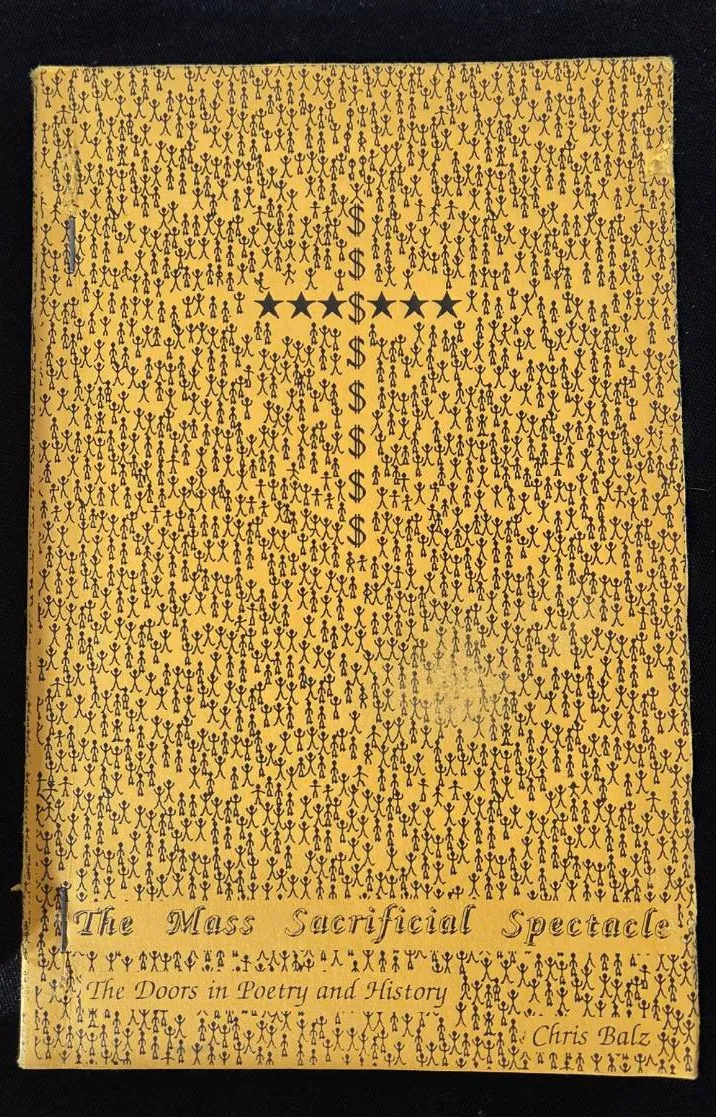 $
$
★★★$★★★
$
$
$
$
$
The Mass Sacrificial Spectacle
The Doors in Poetry and History
Chris Balz